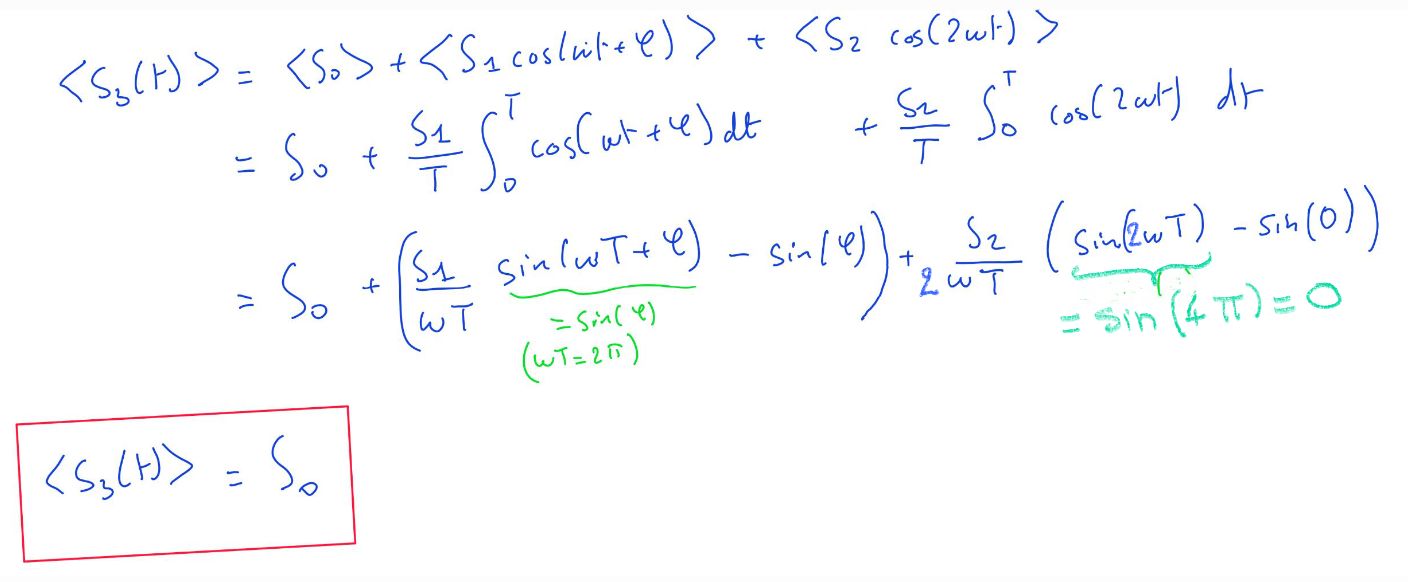 <S₃(t)> = <S₀> + <S₁ cos(ωt+φ)> + <S₂ cos(2ωt)>
= S₀ + S₁/T ∫₀ᵀ cos(ωt+φ) dt + S₂/T ∫₀ᵀ cos(2ωt) dt
= S₀ + (S₁/ωT sin(ωT+φ) - sin(φ)) + S₂/2ωT (sin(2ωT) - sin(0))
= sin(φ) = sin(4π) = 0
(ωT = 2π)
<S₃(t)> = S₀